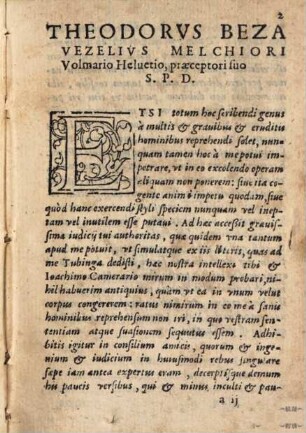 2
THEODORVS BEZA
VEZELIVS MELCHIORI
Volmario Heluetio, præceptori suo
S. P. D.
ETSI totum hoc scribendi genus
à multis & grauibus & eruditis
hominibus reprehendi solet, nun-
quam tamen hoc à me potui im-
petrare, vt in eo excolendo operam
aliquam non ponerem: siue ita co-
gente animi impetu quodam, siue
quòd hanc exercendi styli speciem nunquam vel inep-
tam vel inutilem esse putaui. Ad hæc accessit grauis-
sima iudicij tui authoritas, quæ quidem vna tantum
apud me potuit, vt simulatque ex iis literis, quas ad
me Tubinga dedisti, hæc nostra intellexi tibi &
Ioachimo Camerario mirum in modum probari, ni-
hil habuerim antiquius, quàm vt ea in vnum velut
corpus congererem: ratus nimirum in eo me à sanis
hominibus reprehensum non iri, in quo vestram sen-
tentiam atque suasionem sequutus essem. Adhi-
bitis igitur in consilium amicis, quorum & inge-
nium & iudicium in huiusmodi rebus singulare
sæpe iam antea expertus eram, decerpsi
hui paucis versibus, qui & minus inculti & pau-
a ij